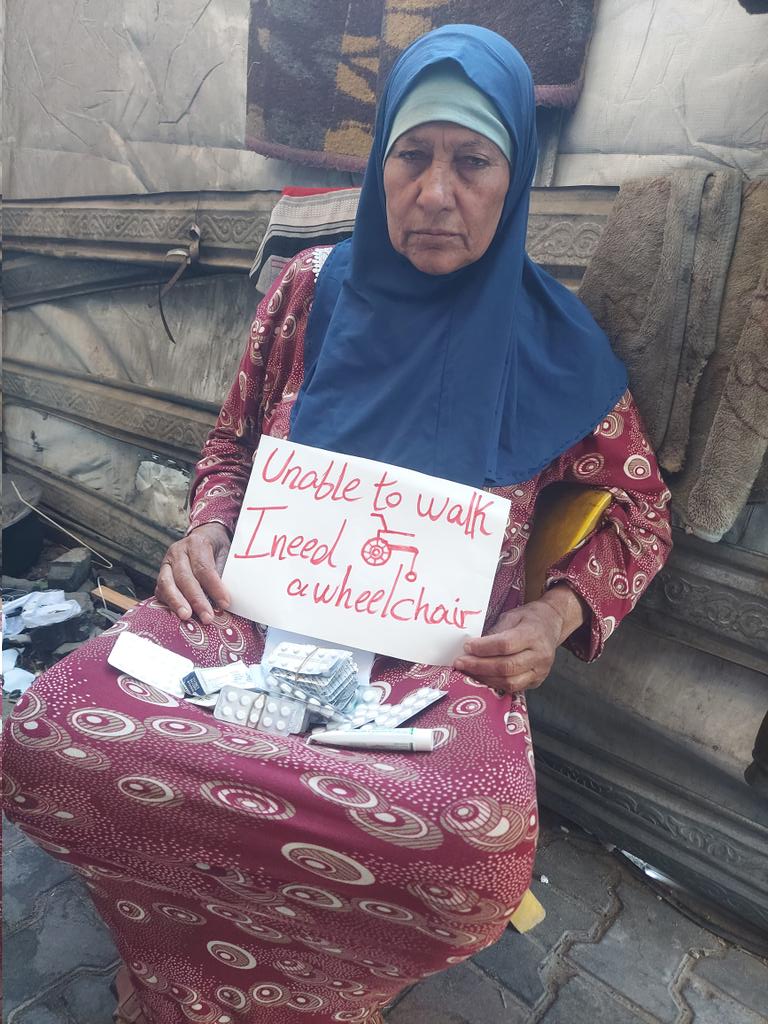 Unable to walk
I need
a wheelchair